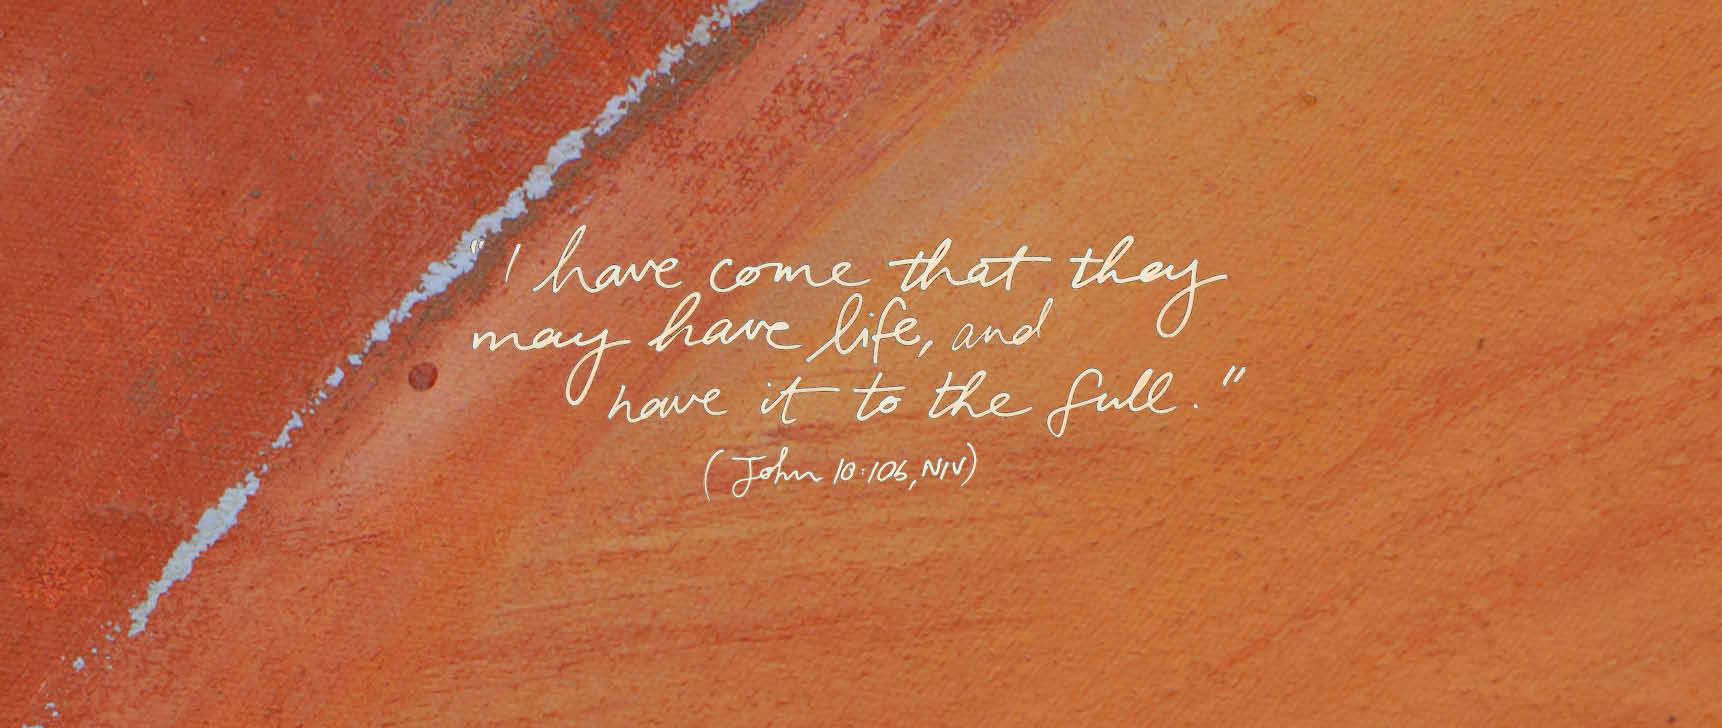 "I have come that they
may have life, and
have it to the full."
(John 10:10b, NIV)